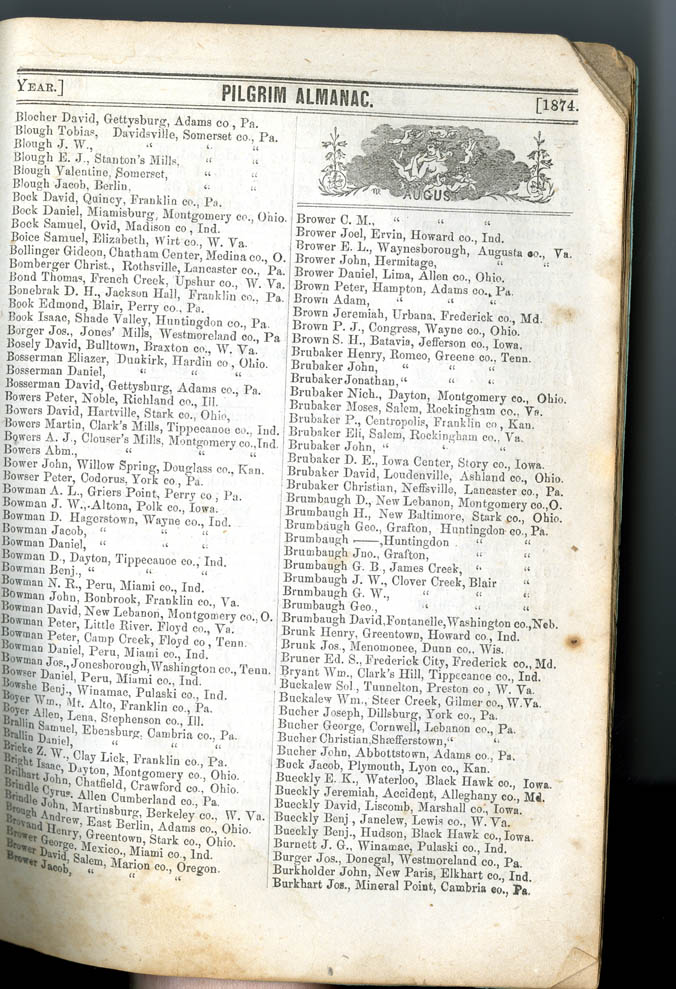 YEAR.]
PILGRIM ALMANAC.
[1874.
Blocher David, Gettysburg, Adams co, Pa.
Blough Tobias, Davidsville, Somerset co., Pa.
Blough J. W., " " "
Blough E. J., Stanton's Mills, " "
Blough Valentine, Somerset, " "
Blough Jacob, Berlin, " "
Bock David, Quincy, Franklin co., Pa.
Bock Daniel, Miamisburg, Montgomery co., Ohio.
Bock Samuel, Ovid, Madison co, Ind.
Boice Samuel, Elizabeth, Wirt co., W. Va.
Bollinger Gideon, Chatham Center, Medina co., O.
Bomberger Christ., Rothsville, Lancaster co., Pa.
Bond Thomas, French Creek, Upshur co., W. Va.
Bonebrak D. H., Jackson Hall, Franklin co., Pa.
Book Edmond, Blair, Perry co., Pa.
Book Isaac, Shade Valley, Huntingdon co., Pa.
Borger Jos., Jones' Mills, Westmoreland co., Pa
Bosely David, Bulltown, Braxton co., W. Va.
Bosserman Eliazer, Dunkirk, Hardin co, Ohio.
Bosserman Daniel, " " "
Bosserman David, Gettysburg, Adams co., Pa.
Bowers Peter, Noble, Richland co., Ill.
Bowers David, Hartville, Stark co., Ohio,
Bowers Martin, Clark's Mills, Tippecanoe co., Ind.
Bowers A. J., Clouser's Mills, Montgomery co., Ind.
Bowers Abm., " " "
Bower John, Willow Spring, Douglass co., Kan.
Bowser Peter, Codorus, York co, Pa.
Bowman A. L., Griers Point, Perry co, Pa.
Bowman J. W., Altona, Polk co., Iowa.
Bowman D. Hagerstown, Wayne co., Ind.
Bowman Jacob, " " "
Bowman Daniel, " " "
Bowman D., Dayton, Tippecanoe co., Ind.
Bowman Benj., " " "
Bowman N. R., Peru, Miami co., Ind.
Bowman John, Bonbrook, Franklin co., Va.
Bowman David, New Lebanon, Montgomery co., O.
Bowman Peter, Little River. Floyd co., Va.
Bowman Peter, Camp Creek, Floyd co, Tenn.
Bowman Daniel, Peru, Miami co., Ind.
Bowman Jos., Jonesborough, Washington co., Tenn.
Bowser Daniel, Peru, Miami co., Ind.
Bowshe Benj., Winamac, Pulaski co., Ind.
Boyer Wm., Mt. Alto, Franklin co., Pa.
Boyer Allen, Lena, Stephenson co., Ill.
Brallin Samuel, Ebensburg, Cambria co., Pa.
Brallin Daniel, " " "
Bricke Z. W., Clay Lick, Franklin co., Pa.
Bright Isaac, Dayton, Montgomery co., Ohio.
Brilhart John, Chatfield, Crawford co., Ohio.
Brindle Cyrus, Allen Cumberland co., Pa.
Brindle John, Martinsburg, Berkeley co., W. Va.
Brough Andrew, East Berlin, Adams co., Ohio.
Brovand Henry, Greentown, Stark co., Ohio.
Brower George, Mexico, Miami co., Ind.
Brower David, Salem, Marion co., Oregon.
Brower Jacob, " " "
AUGUS
Brower C. M., " " "
Brower Joel, Ervin, Howard co., Ind.
Brower E. L., Waynesborough, Augusta co., Va.
Brower John, Hermitage, " "
Brower Daniel, Lima, Allen co., Ohio.
Brown Peter, Hampton, Adams co., Pa.
Brown Adam, " " "
Brown Jeremiah, Urbana, Frederick co., Md.
Brown P. J., Congress, Wayne co., Ohio.
Brown S. H., Batavia, Jefferson co., Iowa.
Brubaker Henry, Romeo, Greene co., Tenn.
Brubaker John, " " "
Brubaker Jonathan, " " "
Brubaker Nich., Dayton, Montgomery co., Ohio.
Brubaker Moses, Salem, Rockingham co., Va.
Brubaker P., Centropolis, Franklin co, Kan.
Brubaker Eli, Salem, Rockingham co., Va.
Brubaker John, " " "
Brubaker D. E., Iowa Center, Story co., Iowa.
Brubaker David, Loudenville, Ashland co., Ohio.
Brubaker Christian, Neffsville, Lancaster co., Pa.
Brumbaugh D., New Lebanon, Montgomery co., O.
Brumbaugh H., New Baltimore, Stark co., Ohio.
Brumbaugh Geo., Grafton, Huntingdon co., Pa.
Brumbaugh ——, Huntingdon " "
Brumbaugh Jno., Grafton, " "
Brumbaugh G. B, James Creek, " "
Brumbaugh J. W., Clover Creek, Blair "
Brnmbaugh G. W., " " "
Brumbaugh Geo., " " "
Brumbaugh David, Fontanelle, Washington co., Neb.
Brunk Henry, Greentown, Howard co., Ind.
Brunk Jos., Menomonee, Dunn co., Wis.
Bruner Ed. S., Frederick City, Frederick co., Md.
Bryant Wm., Clark's Hill, Tippecanoe co., Ind.
Buckalew Sol., Tunnelton, Preston co, W. Va.
Buckalew Wm., Steer Creek, Gilmer co., W. Va.
Bucher Joseph, Dillsburg, York co., Pa.
Bucher George, Cornwell, Lebanon co., Pa.
Bucher Christian, Shæfferstown, " "
Bucher John, Abbottstown, Adams co., Pa.
Buck Jacob, Plymouth, Lyon co., Kan.
Bueckly E. K., Waterloo, Black Hawk co., Iowa.
Bueckly Jeremiah, Accident, Alleghany co., Md.
Bueckly David, Liscomb, Marshall co., Iowa.
Bueckly Benj, Janelew, Lewis co., W. Va.
Bueckly Benj., Hudson, Black Hawk co., Iowa.
Burnett J. G., Winamac, Pulaski co., Ind.
Burger Jos., Donegal, Westmoreland co., Pa.
Burkholder John, New Paris, Elkhart co., Ind.
Burkhart Jos., Mineral Point, Cambria co., Pa.